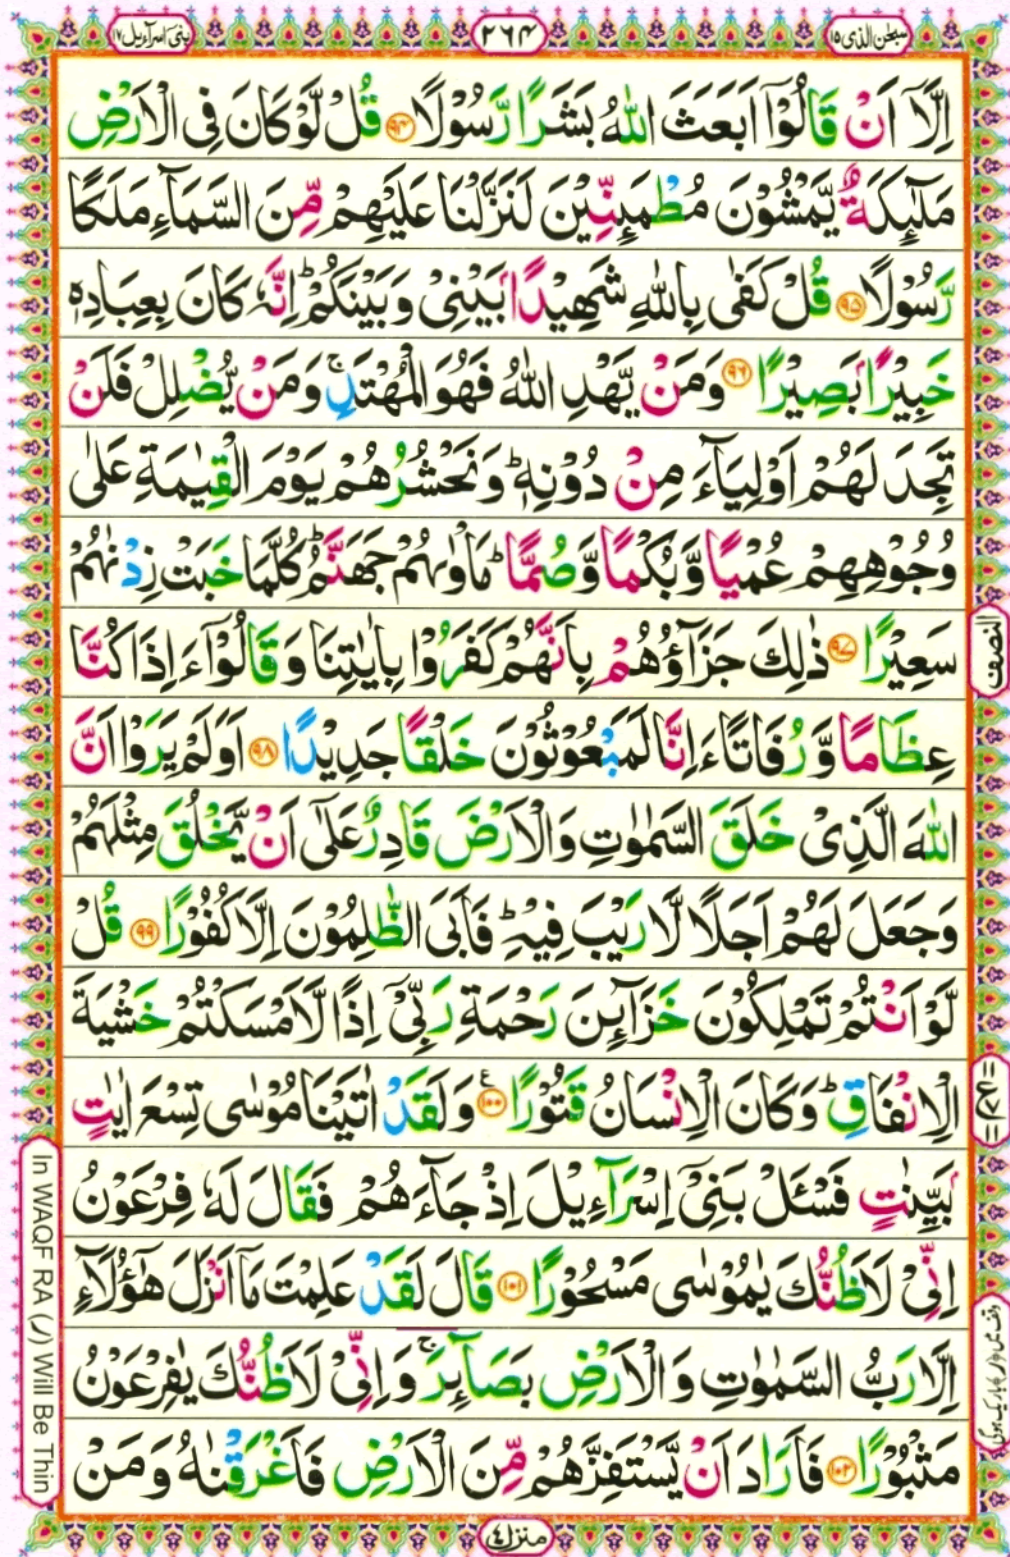 سبحٰن الذی ۱۵
۲۶۴
بنیٓ اسرآءیل ۱۷
اِلَّاۤ اَنْ قَالُوْۤا اَبَعَثَ اللّٰهُ بَشَرًا رَّسُوْلًا ۹۴ قُلْ لَّوْ كَانَ فِی الْاَرْضِ
مَلٰٓىِٕكَةٌ یَّمْشُوْنَ مُطْمَىِٕنِّیْنَ لَنَزَّلْنَا عَلَیْهِمْ مِّنَ السَّمَآءِ مَلَكًا
رَّسُوْلًا ۹۵ قُلْ كَفٰی بِاللّٰهِ شَهِیْدًۢا بَیْنِیْ وَ بَیْنَكُمْ ؕ اِنَّهٗ كَانَ بِعِبَادِهٖ
خَبِیْرًۢا بَصِیْرًا ۹۶ وَ مَنْ یَّهْدِ اللّٰهُ فَهُوَ الْمُهْتَدِ ۚ وَ مَنْ یُّضْلِلْ فَلَنْ
تَجِدَ لَهُمْ اَوْلِیَآءَ مِنْ دُوْنِهٖ ؕ وَ نَحْشُرُهُمْ یَوْمَ الْقِیٰمَةِ عَلٰی
وُجُوْهِهِمْ عُمْیًا وَّ بُكْمًا وَّ صُمًّا ؕ مَاْوٰىهُمْ جَهَنَّمُ ؕ كُلَّمَا خَبَتْ زِدْنٰهُمْ
سَعِیْرًا ۹۷ ذٰلِكَ جَزَآؤُهُمْ بِاَنَّهُمْ كَفَرُوْا بِاٰیٰتِنَا وَ قَالُوْۤا ءَاِذَا كُنَّا
النصف
عِظَامًا وَّ رُفَاتًا ءَاِنَّا لَمَبْعُوْثُوْنَ خَلْقًا جَدِیْدًا ۹۸ اَوَ لَمْ یَرَوْا اَنَّ
اللّٰهَ الَّذِیْ خَلَقَ السَّمٰوٰتِ وَ الْاَرْضَ قَادِرٌ عَلٰۤی اَنْ یَّخْلُقَ مِثْلَهُمْ
وَ جَعَلَ لَهُمْ اَجَلًا لَّا رَیْبَ فِیْهِ ؕ فَاَبَی الظّٰلِمُوْنَ اِلَّا كُفُوْرًا ۹۹ قُلْ
لَّوْ اَنْتُمْ تَمْلِكُوْنَ خَزَآىِٕنَ رَحْمَةِ رَبِّیْۤ اِذًا لَّاَمْسَكْتُمْ خَشْیَةَ
الْاِنْفَاقِ ؕ وَ كَانَ الْاِنْسَانُ قَتُوْرًا ۱۰۰ ع وَ لَقَدْ اٰتَیْنَا مُوْسٰی تِسْعَ اٰیٰتٍۭ
بَیِّنٰتٍ فَسْـَٔلْ بَنِیْۤ اِسْرَآءِیْلَ اِذْ جَآءَهُمْ فَقَالَ لَهٗ فِرْعَوْنُ
اِنِّیْ لَاَظُنُّكَ یٰمُوْسٰی مَسْحُوْرًا ۱۰۱ قَالَ لَقَدْ عَلِمْتَ مَاۤ اَنْزَلَ هٰۤؤُلَآءِ
اِلَّا رَبُّ السَّمٰوٰتِ وَ الْاَرْضِ بَصَآىِٕرَ ۚ وَ اِنِّیْ لَاَظُنُّكَ یٰفِرْعَوْنُ
مَثْبُوْرًا ۱۰۲ فَاَرَادَ اَنْ یَّسْتَفِزَّهُمْ مِّنَ الْاَرْضِ فَاَغْرَقْنٰهُ وَ مَنْ
منزل ٤
In WAQF RA (ر) Will Be Thin